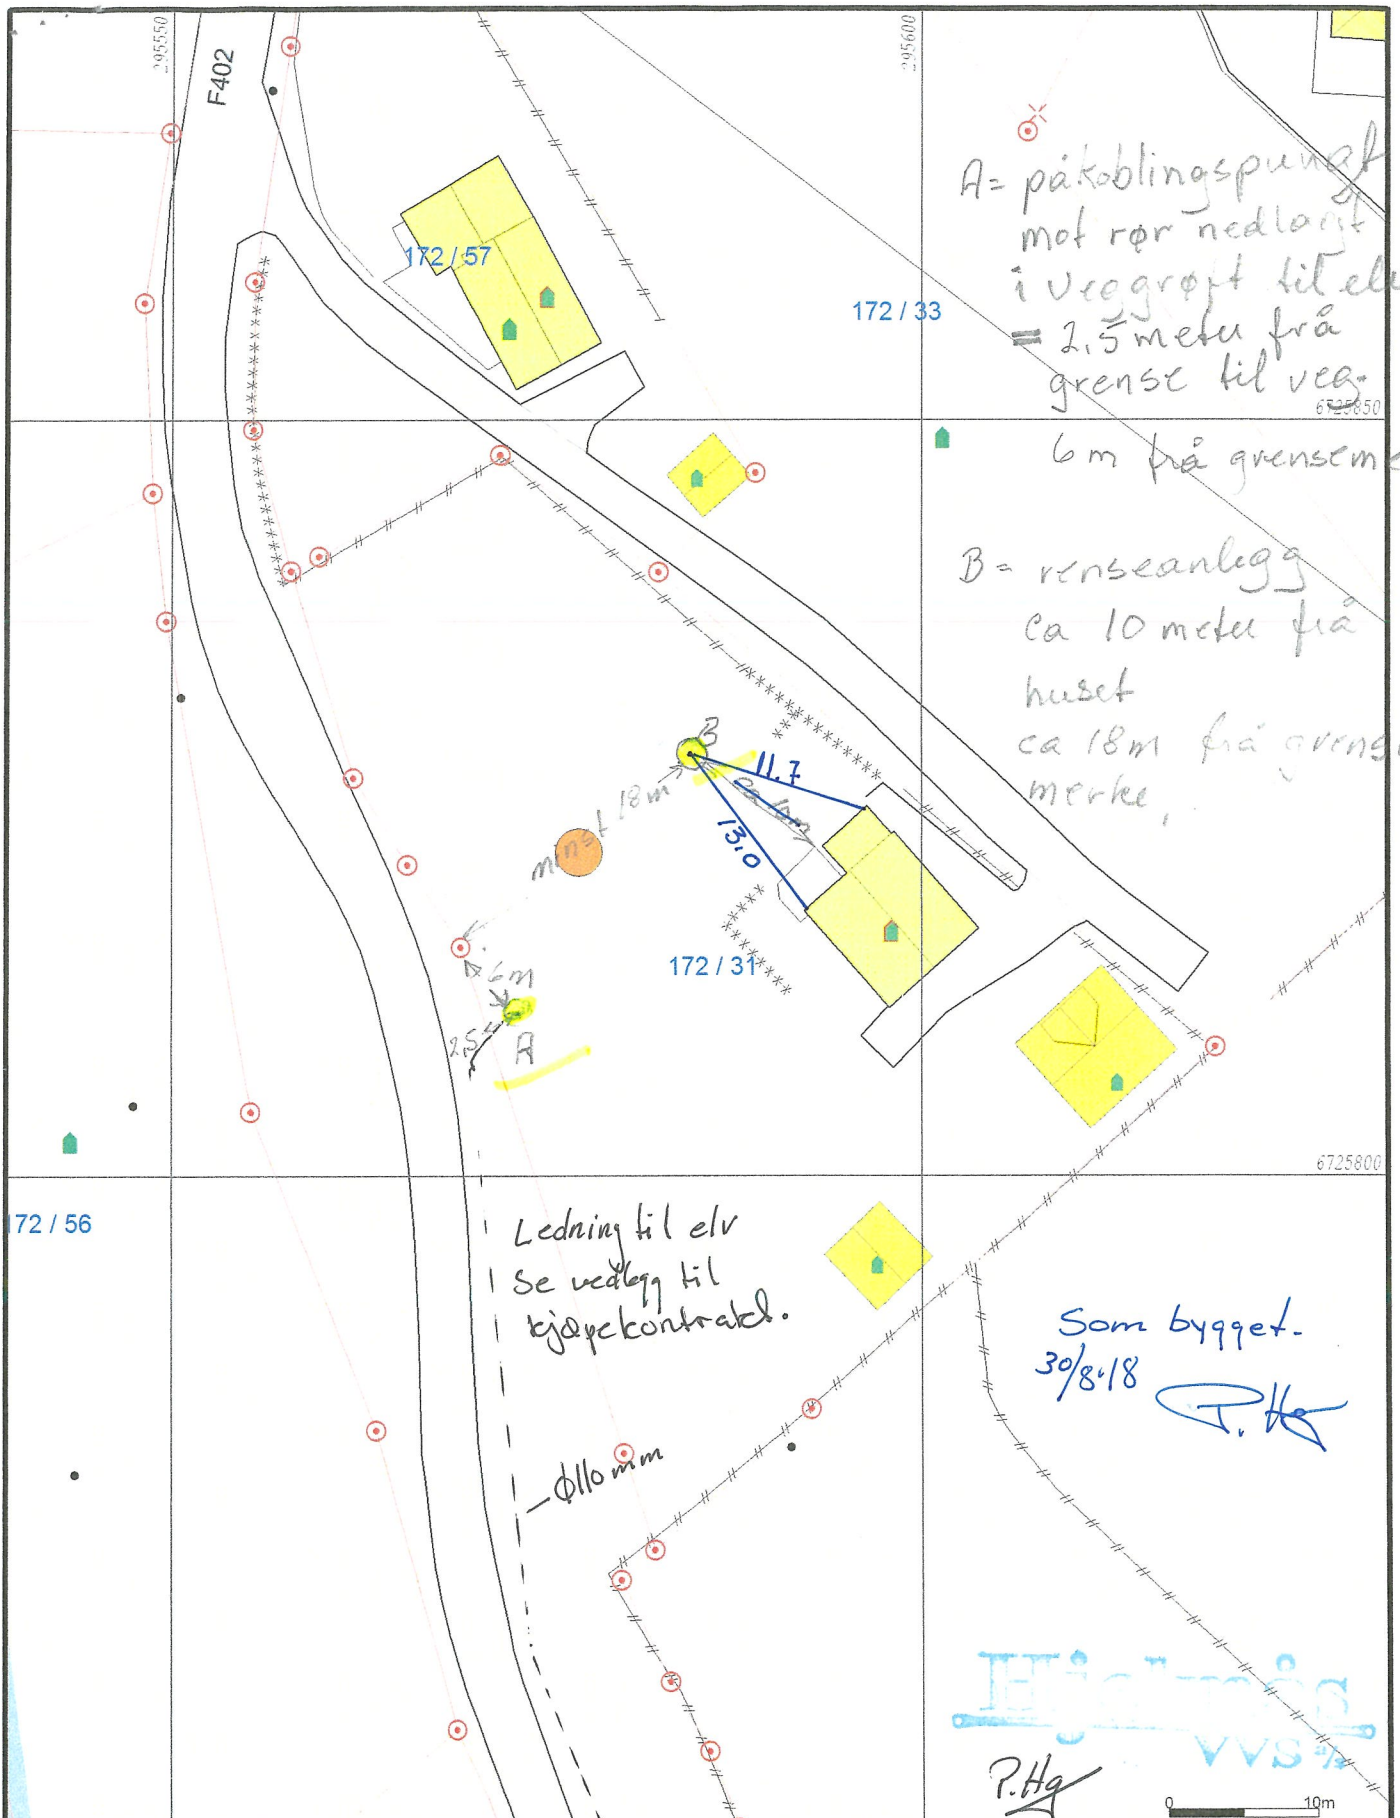 295550
295600
F402
A= påkoblingspungt
mot rør nedlagt
i veggrøft til elv
= 2,5 meter frå
grense til veg.
6725850
6 m frå grenseme
172 / 57
172 / 33
B= renseanlegg
ca 10 meter frå
huset
ca 18m frå grens
merke,
B
11.7
ca 10m
13,0
minst 18m
172 / 31
6m
2,5
A
6725800
172 / 56
Ledning til elv
Se vedlegg til
kjøpekontrakt.
Som bygget.
30/8-18
P. Hg
Ø110mm
Hjelmås
VVS a/s
P.Hg
0 10m